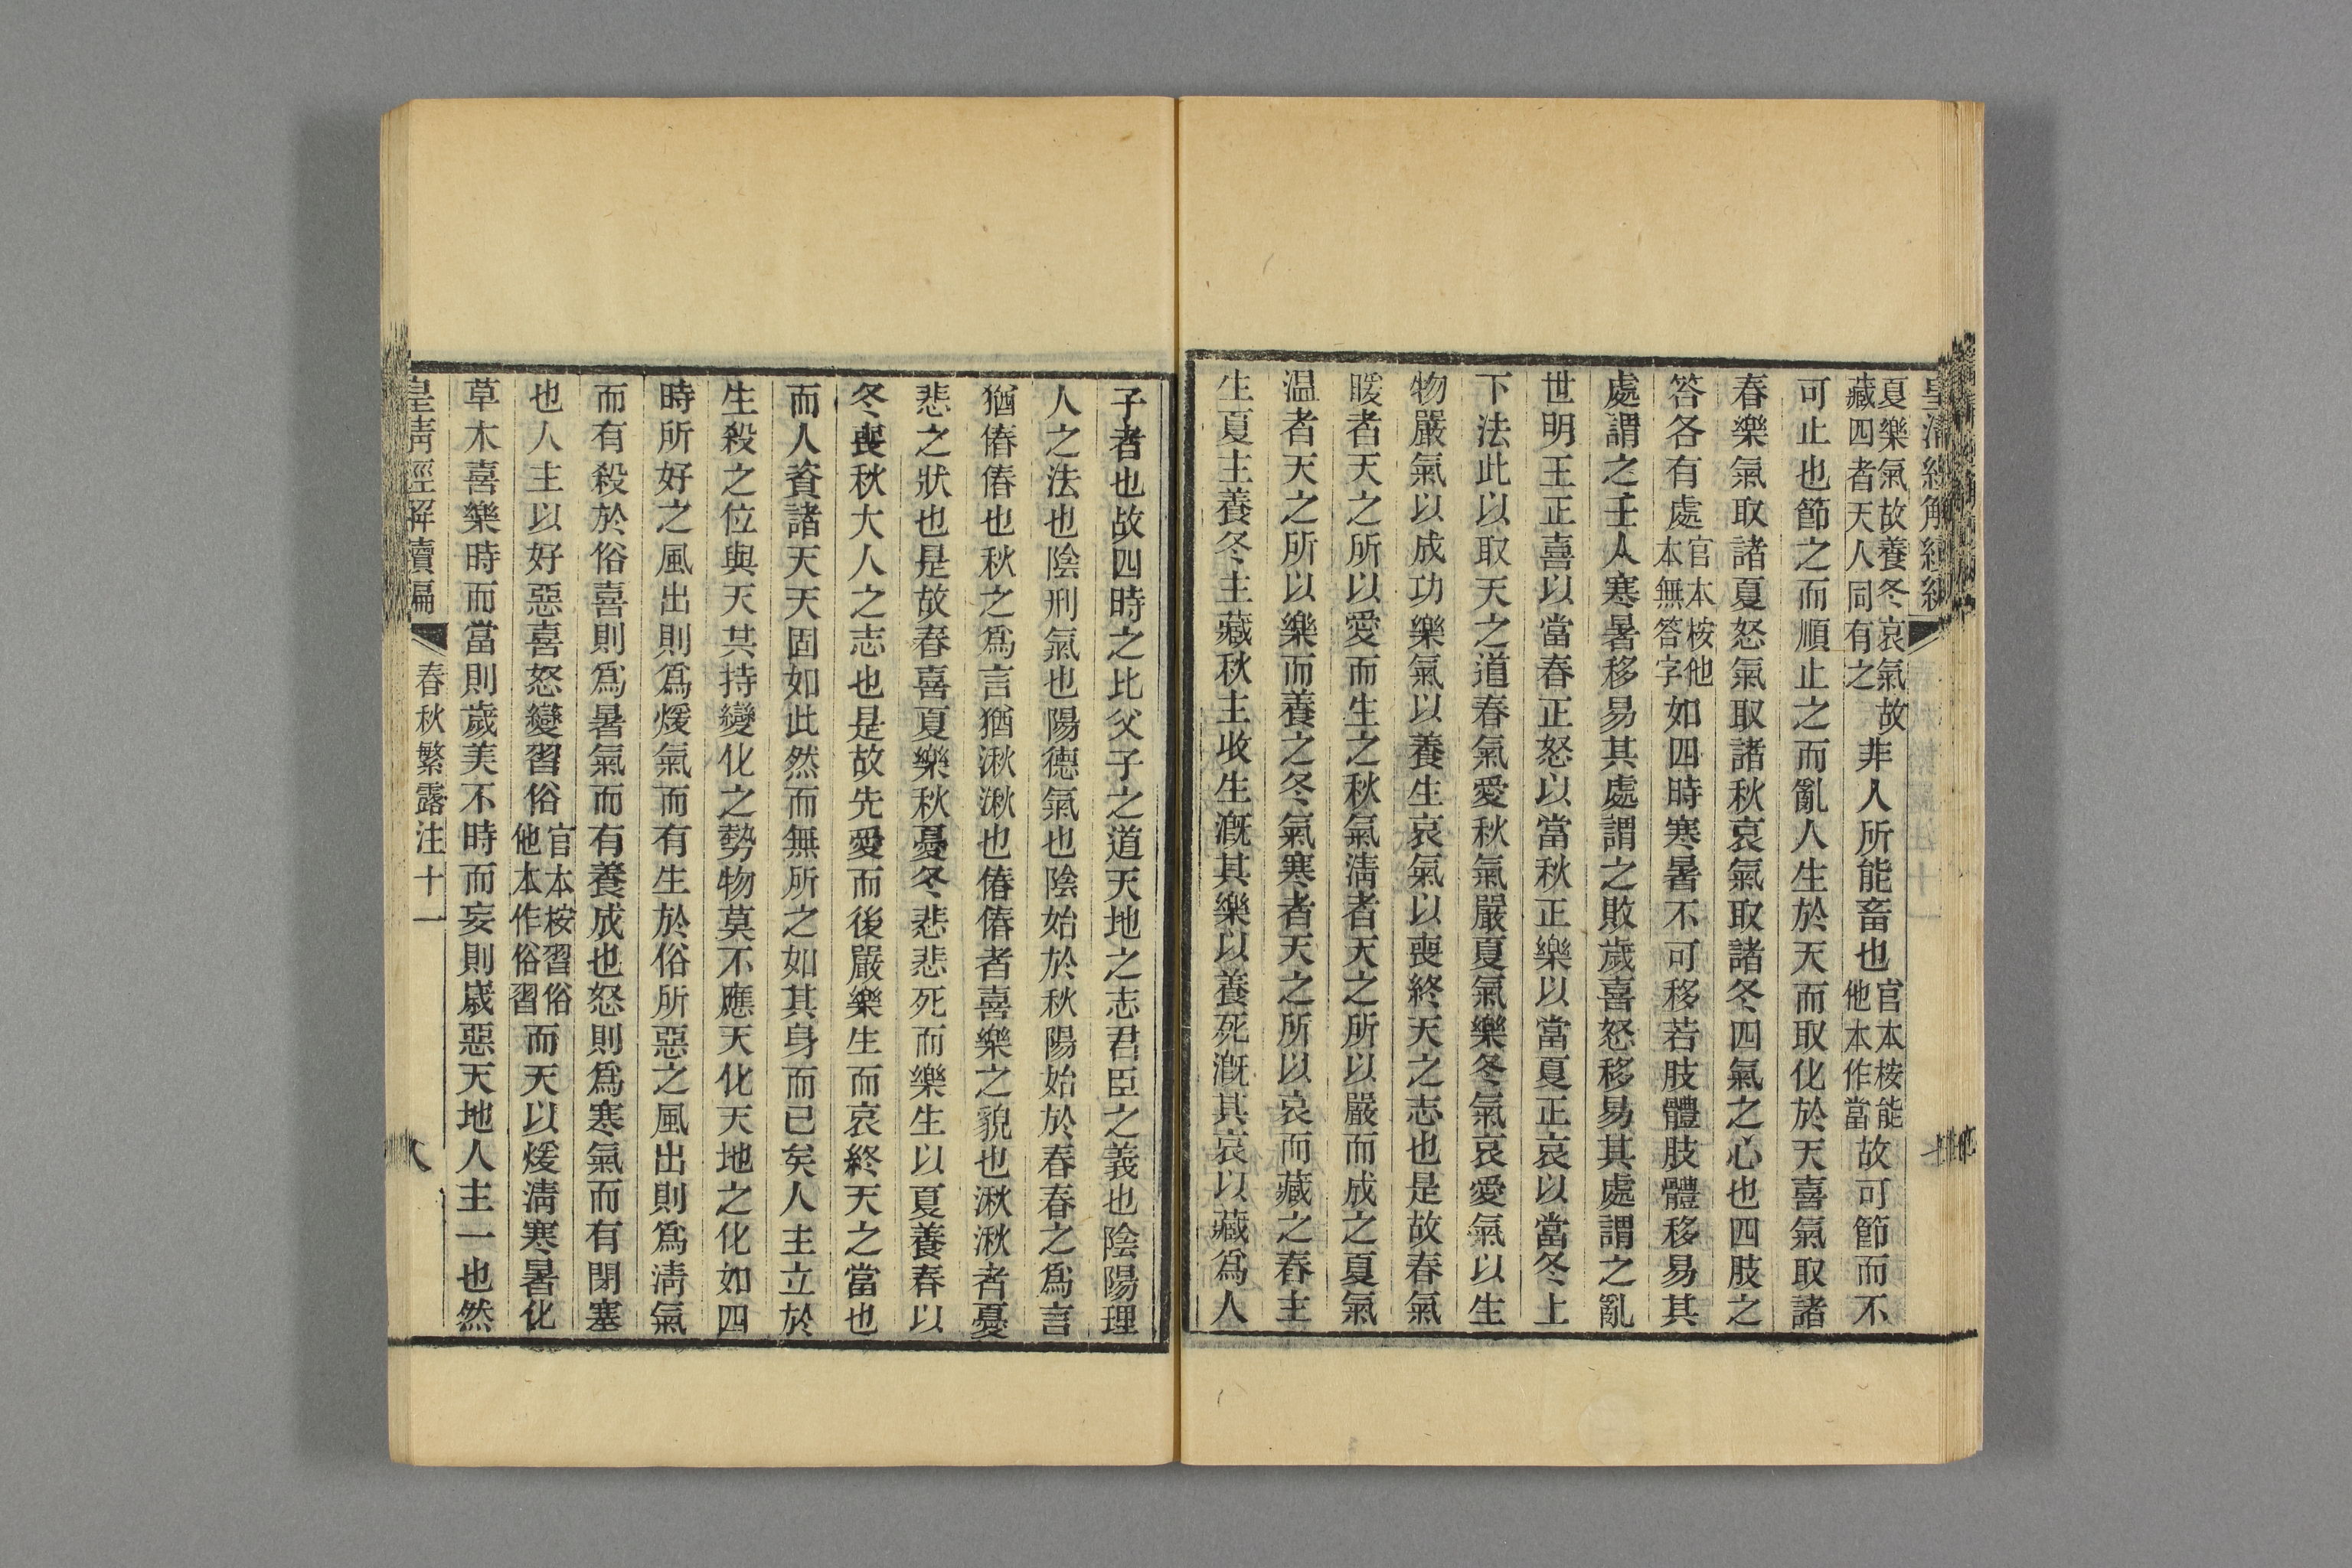 皇清經解續編
夏樂氣故養冬哀氣故
藏四者天人同有之
非人所能畜也
官本桉能
他本作當
故可節而不
可止也節之而順止之而亂人生於天而取化於天喜氣取諸
春樂氣取諸夏怒氣取諸秋哀氣取諸冬四氣之心也四肢之
答各有處
官本桉他
本無答字
如四時寒暑不可移若肢體肢體移易其
處謂之壬人寒暑移易其處謂之敗歲喜怒移易其處謂之亂
世明王正喜以當春正怒以當秋正樂以當夏正哀以當冬上
下法此以取天之道春氣愛秋氣嚴夏氣樂冬氣哀愛氣以生
物嚴氣以成功樂氣以養生哀氣以喪終天之志也是故春氣
暖者天之所以愛而生之秋氣淸者天之所以嚴而成之夏氣
温者天之所以樂而養之冬氣寒者天之所以哀而藏之春主
生夏主養冬主藏秋主收生溉其樂以養死溉其哀以藏爲人
子者也故四時之比父子之道天地之志君臣之義也陰陽理
人之法也陰刑氣也陽德氣也陰始於秋陽始於春春之爲言
猶偆偆也秋之爲言猶湫湫也偆偆者喜樂之貌也湫湫者憂
悲之狀也是故春喜夏樂秋憂冬悲悲死而樂生以夏養春以
冬喪秋大人之志也是故先愛而後嚴樂生而哀終天之當也
而人資諸天天固如此然而無所之如其身而已矣人主立於
生殺之位與天共持變化之勢物莫不應天化天地之化如四
時所好之風出則爲煖氣而有生於俗所惡之風出則爲淸氣
而有殺於俗喜則爲暑氣而有養成也怒則爲寒氣而有閉塞
也人主以好惡喜怒變習俗
官本桉習俗
他本作俗習
而天以煖淸寒暑化
草木喜樂時而當則歲美不時而妄則歲惡天地人主一也然
皇淸經解續編
春秋繁露注十一
八